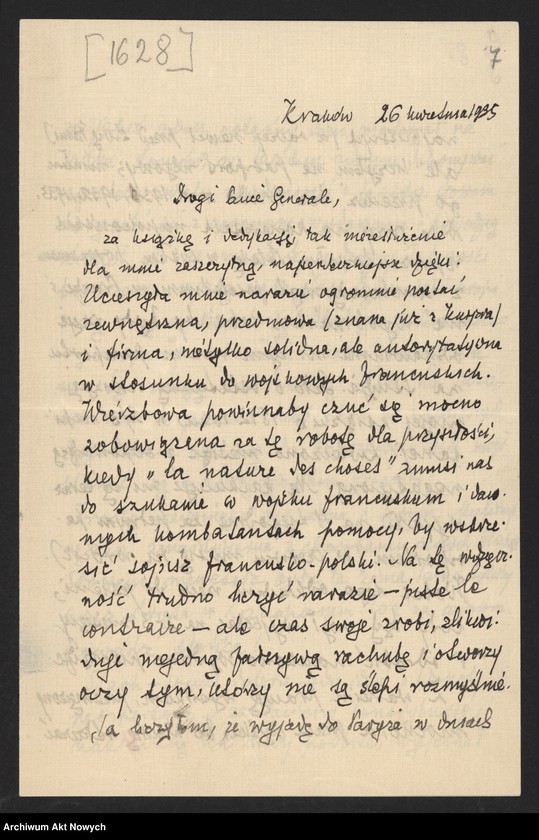 [1628]
7
Kraków 26 kwietnia 1935
Drogi Panie Generale,
za książkę i dedykację, tak niezasłużenie
dla mnie zaszczytną, najserdeczniejsze dzięki!
Ucieszyła mnie narazie ogromnie postać
zewnętrzna, przedmowa (znana już z Kurjera)
i firma, nietylko solidna, ale autorytatywna
w stosunku do wojskowych francuskich.
Wierzbowa powinnaby czuć się mocno
zobowiązena za tę robotę dla przyszłości,
kiedy „la nature des choses" zmusi nas
do szukania w wojsku francuskim i daw-
nych kombatantach pomocy, by wskrze-
sić sojusz francusko-polski. Na tę wdzięcz-
ność trudno liczyć narazie – juste le
contraire – ale czas swoje zrobi, zlikwi-
duje niejedną fałszywą rachubę i otworzy
oczy tym, którzy nie są ślepi rozmyślnie.
Ja liczyłem, że wyjadę do Paryża w dniach
Archiwum Akt Nowych